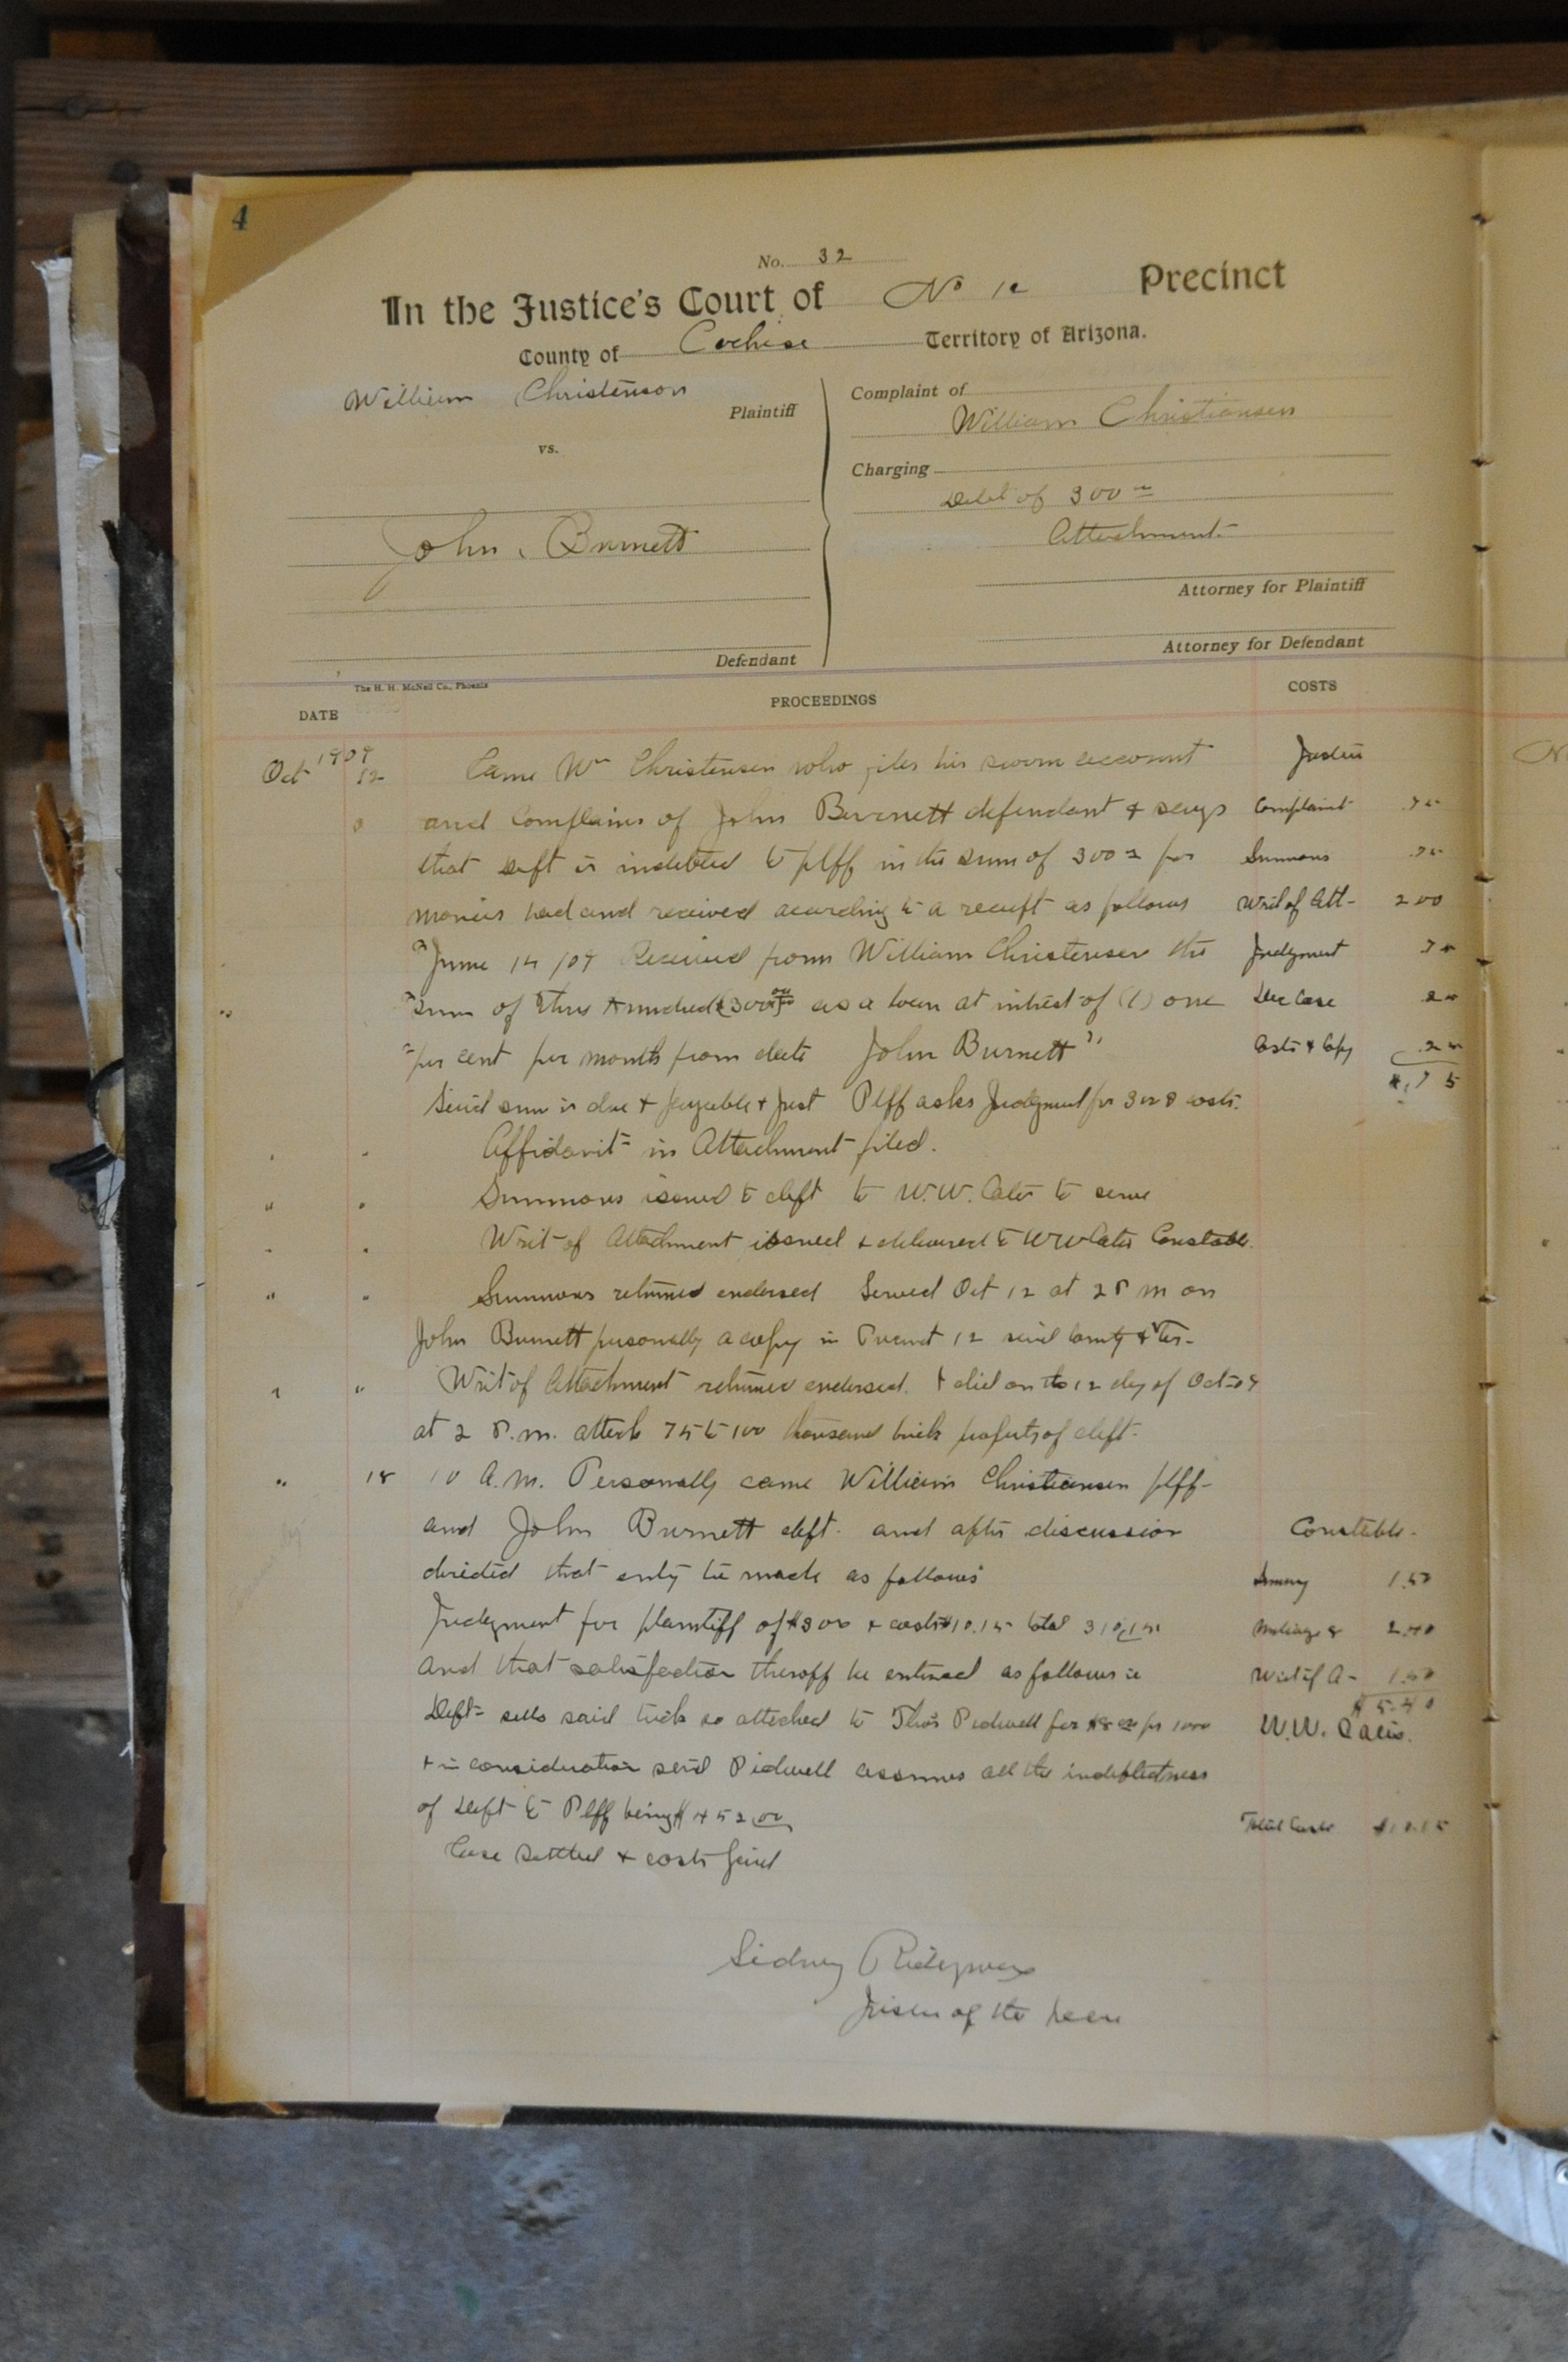 4
No. 32
In the Justice's Court of No 12 Precinct
County of Cochise Territory of Arizona.
William Christenson
Plaintiff
vs.
John Burnett
Defendant
Complaint of
William Christiansen
Charging
Debt of 300
Attachment
Attorney for Plaintiff
Attorney for Defendant
The H. H. McNeil Co., Phoenix
DATE PROCEEDINGS COSTS
Oct 12 Came Wm Christensen who files his sworn account Justice
and Complains of John Burnett defendant & says Complaint
that deft is indebted to plff in the sum of 300 for Summons
monies had and received acording to a receipt as follows Writ of Att- 2 00
"June 14 /09 Received from William Christensen the Judgment
"sum of Three Hundred as a loan at intrest of (1) one Doc Case
"per cent per month from date John Burnett" Costs & Copy
Said sum is due & payable & just Plff asks Judgment for costs.
Affidavit in Attachment filed.
Summons issued to deft to W.W. to serve
Writ of Attachment issued & delivered to W W Constable.
Summons returned endorsed Served Oct 12 at 2 P m on
John Burnett personally a copy in Precinct 12 said County & Ter-
Writ of Attachment returned endorsed. I did on the 12 day of Oct
at 2 P.m. attach 75 to 100 thousand brick property of deft.
" 18 10 A.M. Personally came William Christiansen plff-
and John Burnett deft. and after discussion Constable.
decided that entry be made as follows 1.50
Judgment for plaintiff of $300 & costs $10.15 total 310.15 Mileage 8 2.40
and that satisfaction theroff be entered as follows ie Writ of A- 1.50
$5.40
Deft sells said brick so attached to Thos Pidwell for per 1000 W.W.
& in consideration said Pidwell assumes all the indebtedness
of Deft to Plff being $452.00 Total Costs $10.15
Case settled & costs paid
Sidney Ridgway
Justice of the Peace